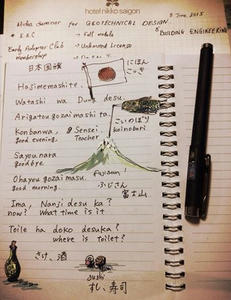 hotel nikko saigon
Seminar for GEOTECHNICAL DESIGN
5 June 2015
BUILDING ENGINEERING
Full modules
Early Adopter Club
membership
→ Unlimited License
日本国旗
にほん
こっき
Hajimemashite.
Watashi wa Dung desu.
Arigatou gozaimashita.
こいのぼり
koinobori
Konbanwa,
Good evening.
Sensei
Teacher
Sayounara
goodbye.
Fujisan!
Ohayou gozaimasu.
Good morning.
ふじさん
富士山
Ima, Nanji desu ka?
now? What time is it
Toile ha doko desuka?
where is Toilet?
さけ、酒
sushi
すし、寿司